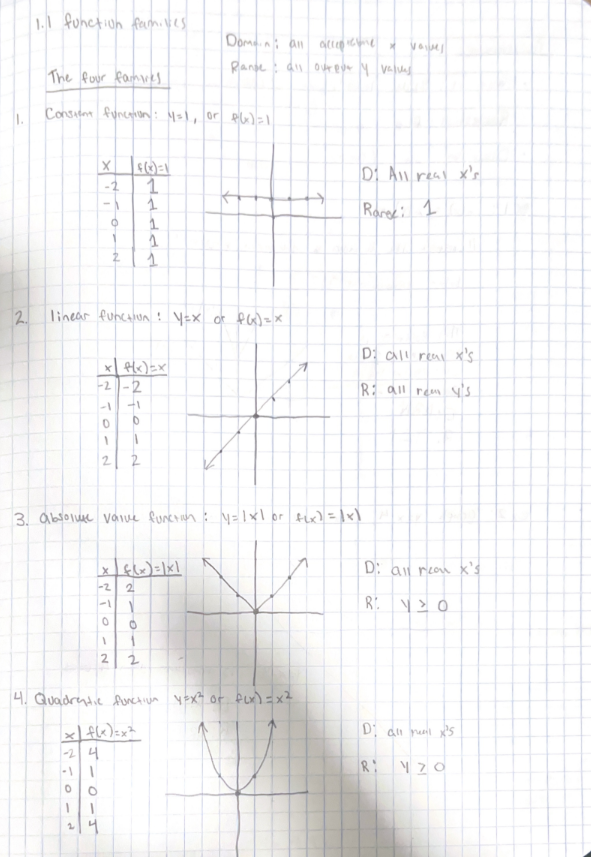 1.1 function families
Domain: all acceptable x values
Range: all output y values
The four families
1. Constant function: y=1, or f(x)=1
x f(x)=1
-2 1
-1 1
0 1
1 1
2 1
D: All real x's
Range: 1
2. linear function: y=x or f(x)=x
x f(x)=x
-2 -2
-1 -1
0 0
1 1
2 2
D: all real x's
R: all real y's
3. absolute value function: y=|x| or f(x)=|x|
x f(x)=|x|
-2 2
-1 1
0 0
1 1
2 2
D: all real x's
R: y≥0
4. Quadratic function y=x² or f(x)=x²
x f(x)=x²
-2 4
-1 1
0 0
1 1
2 4
D: all real x's
R: y≥0